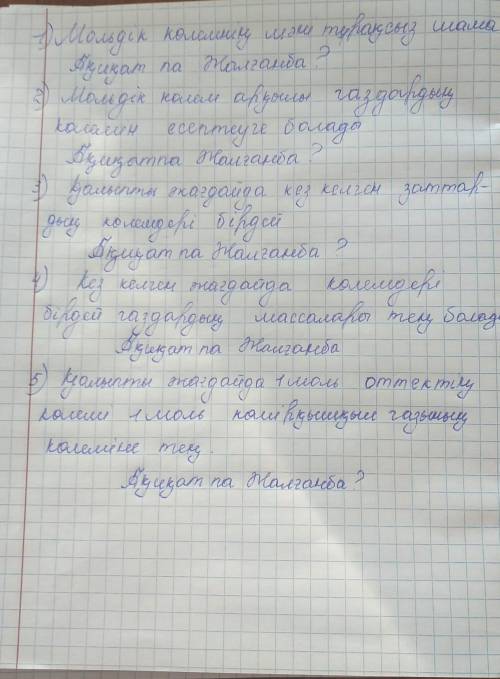 1) Мольдік көлемнің мәні тұрақсыз шама
Ақиқат па Жалғанба?
2) Мольдік көлем арқылы газдардың
көлемін есептеуге болады
Ақиқат па Жалғанба?
3) Қалыпты жағдайда кез келген заттар-
дың көлемдері бірдей
Ақиқат па Жалғанба?
4) Кез келген жағдайда көлемдері
бірдей газдардың массалары тең болады
Ақиқат па Жалғанба
5) Қалыпты жағдайда 1 моль оттектің
көлемі 1 моль көмірқышқыл газының
көлеміне тең.
Ақиқат па Жалғанба?